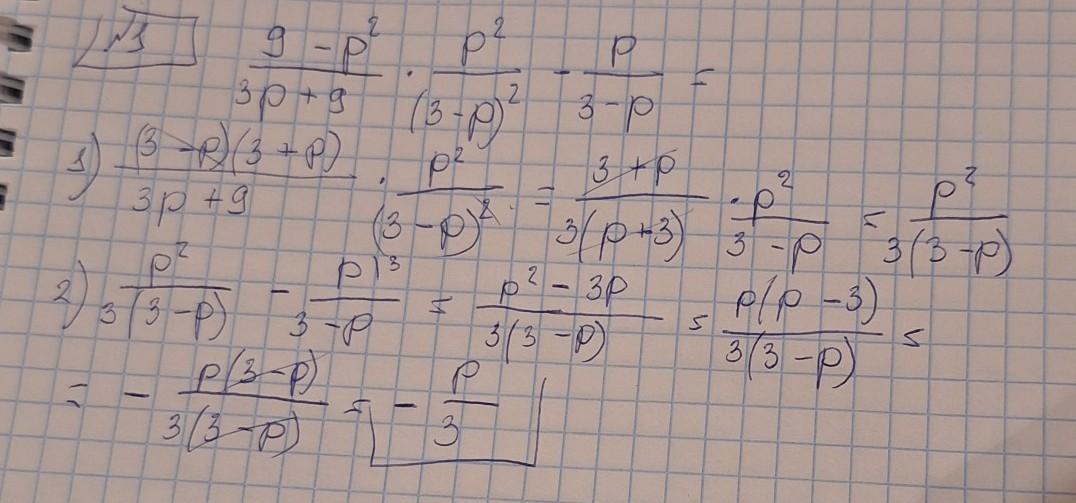 №1 \frac{9-p^2}{3p+9} \cdot \frac{p^2}{(3-p)^2} - \frac{p}{3-p} =
1) \frac{(3-p)(3+p)}{3p+9} \cdot \frac{p^2}{(3-p)^2} = \frac{3+p}{3(p+3)} \cdot \frac{p^2}{3-p} = \frac{p^2}{3(3-p)}
2) \frac{p^2}{3(3-p)} - \frac{p^{|3}}{3-p} = \frac{p^2-3p}{3(3-p)} = \frac{p(p-3)}{3(3-p)} =
= - \frac{p(3-p)}{3(3-p)} = - \frac{p}{3}